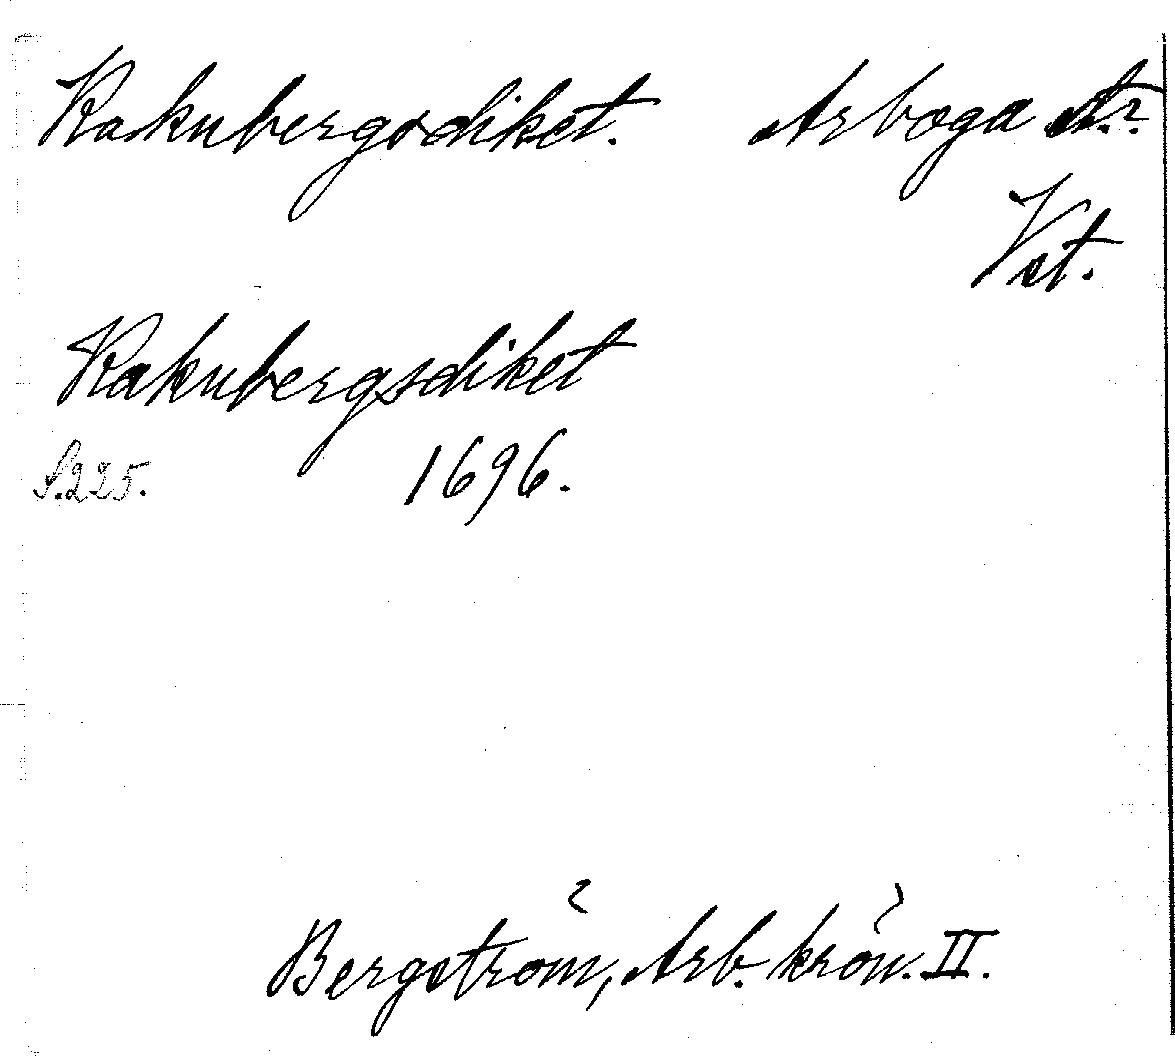 Kaknbergsdiket. Arboga
Vst.
Kaknbergsdiket
S.225. 1696.
Bergström, Arb. krön. II.